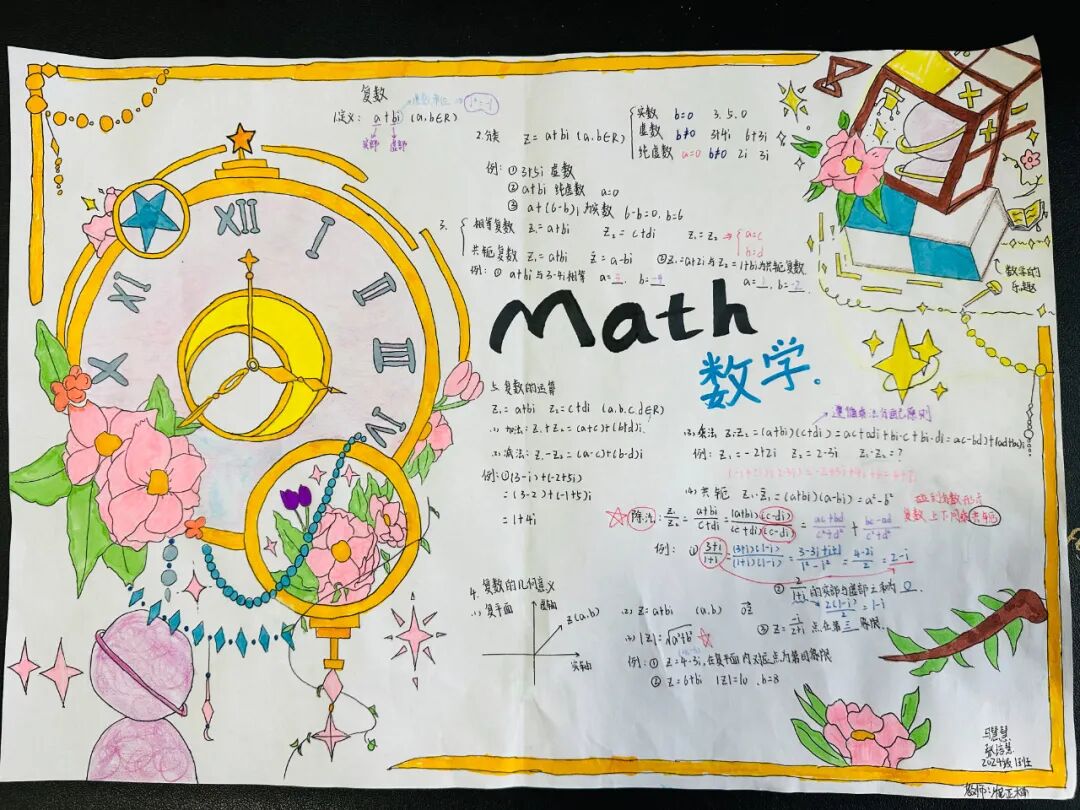 复数
1.定义: a+bi (a,b∈R)
虚数单位 → i²=-1
实部 虚部
2.分类 z=a+bi (a,b∈R)
实数 b=0 3.5.0
虚数 b≠0 3+4i 6+3i
纯虚数 a=0 b≠0 2i 3i
例: ① 3+5i 虚数
② a+bi 纯虚数 a=0
③ a+(6-b)i 为实数 6-b=0, b=6
3.
相等复数 z₁=a+bi z₂=c+di z₁=z₂ → a=c b=d
共轭复数 z₁=a+bi z̄=a-bi ②z₁=a+2i与z₂=1+bi为共轭复数.
例: ① a+bi与3-4i相等 a=3, b=-4 a=1, b=-2
Math
数学.
数学的
乐趣
复数的运算
z₁=a+bi z₂=c+di (a.b.c.d∈R)
(1) 加法: z₁+z₂=(a+c)+(b+d)i.
(2) 减法: z₁-z₂=(a-c)+(b-d)i
例: ① (3-i)+(-2+5i)
=(3-2)+(-1+5)i
=1+4i
(3) 乘法 z₁z₂=(a+bi)(c+di)=ac+adi+bi·c+bi·di=(ac-bd)+(ad+bc)i
例: z₁=-2+2i z₂=2-3i z₁z₂=?
(4) 共轭 z₁·z̄₁=(a+bi)(a-bi)=a²-b²
☆除法: z₁/z₂=(a+bi)/(c+di)=(a+bi)(c-di)/(c+di)(c-di)=(ac+bd)/(c²+d²)+(bc-ad)/(c²+d²)
复数 上下同乘共轭
例: ① (3+i)/(1+i)=(3+i)(1-i)/(1+i)(1-i)=(3-3i+i+1)/(1²-i²)=(4-2i)/2=2-i
② 2/(1+i) 的实部与虚部之和为 0.
2(1-i)/2=1-i
点在第三象限.
4. 复数的几何意义
(1) 复平面
虚轴
z(a,b)
实轴
(2) z=a+bi (a,b) OZ
(3) |z|=√a²+b² ☆
例: ① z=4-3i, 在复平面内对应点为第四象限
② z=6+bi |z|=10 .b=8
2024级
教师: